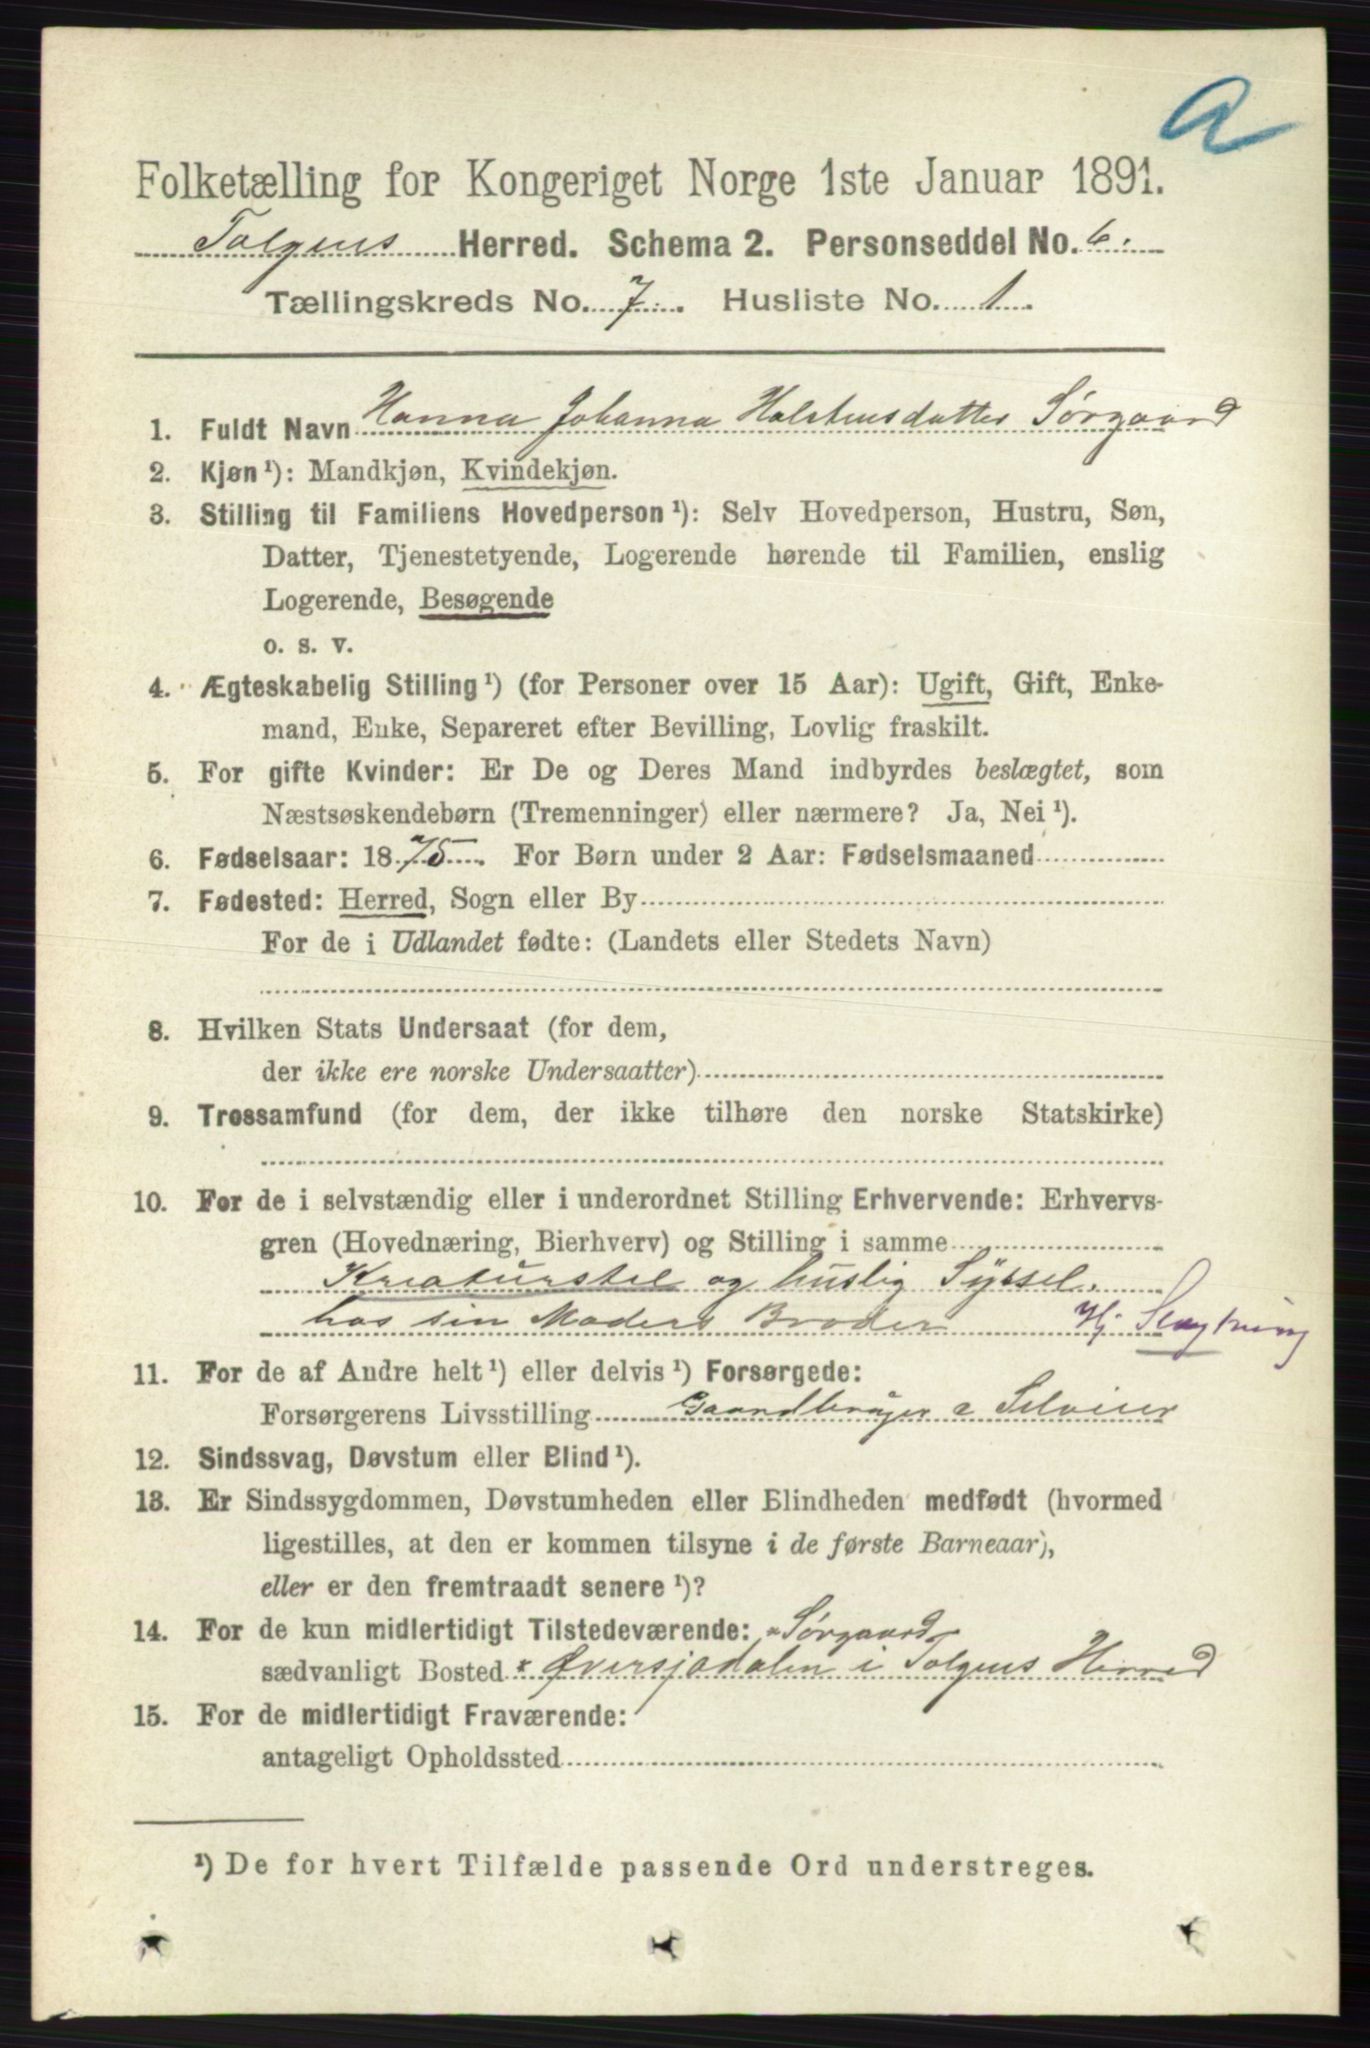 a
Folketælling for Kongeriget Norge 1ste Januar 1891.
Tolgens Herred. Schema 2. Personseddel No. 6.
Tællingskreds No. 7. Husliste No. 1.
1. Fuldt Navn Hanna Johanna Halstensdatter Sørgaard
2. Kjøn ¹): Mandkjøn, Kvindekjøn.
3. Stilling til Familiens Hovedperson ¹): Selv Hovedperson, Hustru, Søn,
Datter, Tjenestetyende, Logerende hørende til Familien, enslig
Logerende, Besøgende
o. s. v.
4. Ægteskabelig Stilling ¹) (for Personer over 15 Aar): Ugift, Gift, Enke-
mand, Enke, Separeret efter Bevilling, Lovlig fraskilt.
5. For gifte Kvinder: Er De og Deres Mand indbyrdes beslægtet, som
Næstsøskendebørn (Tremenninger) eller nærmere? Ja, Nei ¹).
6. Fødselsaar: 1875. For Børn under 2 Aar: Fødselsmaaned
7. Fødested: Herred, Sogn eller By
For de i Udlandet fødte: (Landets eller Stedets Navn)
8. Hvilken Stats Undersaat (for dem,
der ikke ere norske Undersaatter)
9. Trossamfund (for dem, der ikke tilhøre den norske Statskirke)
10. For de i selvstændig eller i underordnet Stilling Erhvervende: Erhvervs-
gren (Hovednæring, Bierhverv) og Stilling i samme
Kreaturstel og huslig Syssel.
hos sin Moders Broder Hj
11. For de af Andre helt ¹) eller delvis ¹) Forsørgede:
Forsørgerens Livsstilling Gaardbruger & Selveier
12. Sindssvag, Døvstum eller Blind ¹).
13. Er Sindssygdommen, Døvstumheden eller Blindheden medfødt (hvormed
ligestilles, at den er kommen tilsyne i de første Barneaar),
eller er den fremtraadt senere ¹)?
14. For de kun midlertidigt Tilstedeværende: Sørgaard
sædvanligt Bosted Øversjødalen i Tolgens Herred
15. For de midlertidigt Fraværende:
antageligt Opholdssted
¹) De for hvert Tilfælde passende Ord understreges.